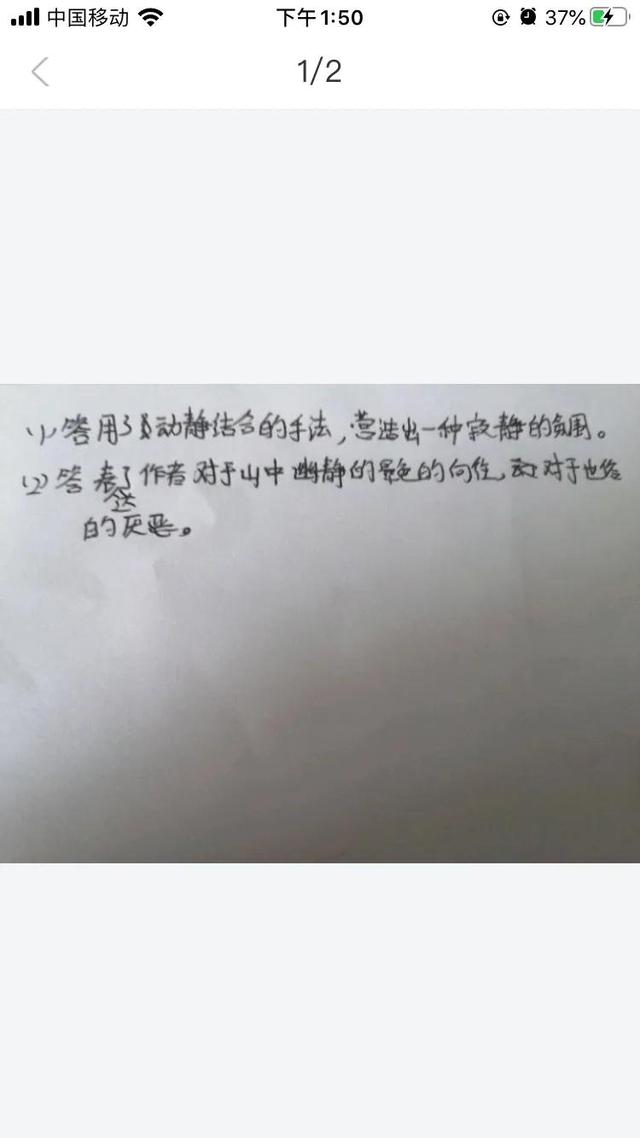 中国移动 下午1:50 37%
1/2
(1)答用了动静结合的手法,营造出一种寂静的氛围。
(2)答表达了作者对于山中幽静的景色的向往,对于世俗
的厌恶。